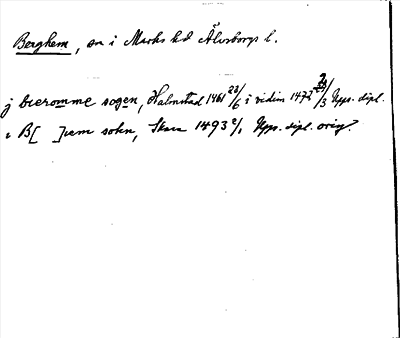 Berghem, sn i Marks hd Älvsborgs l.
j bieromme sogen, Halmstad 1461 23/6 i vidim 1477 /3 Upps. dipl.
i B[ ]em sokn, Skara 1493 2/1 Upps. dipl. orig.